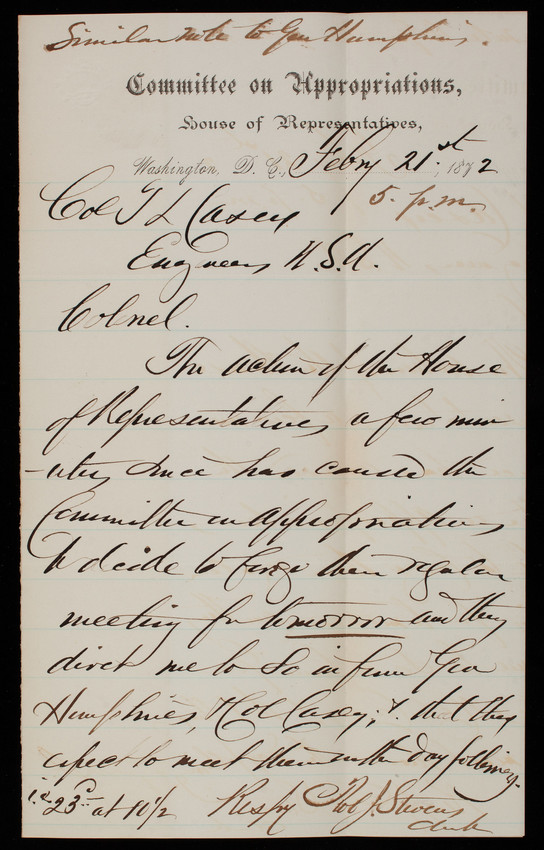 Similar note to Gen Humphries.
Committee on Appropriations,
House of Representatives,
Washington, D. C., Febry 21st, 1872
5. p.m.
Col T L Casey
Engineers U.S.A.
Colonel.
The action of the House
of Representatives a few min
-utes since has caused the
Committee on Appropriations
to decide to forego their regular
meeting for tomorrow and they
direct me to so inform Gen
Humphries, & Col Casey; & that they
expect to meet them on the day following
i.e. 23d at 10½ Respy Rob J. Stevens
clerk